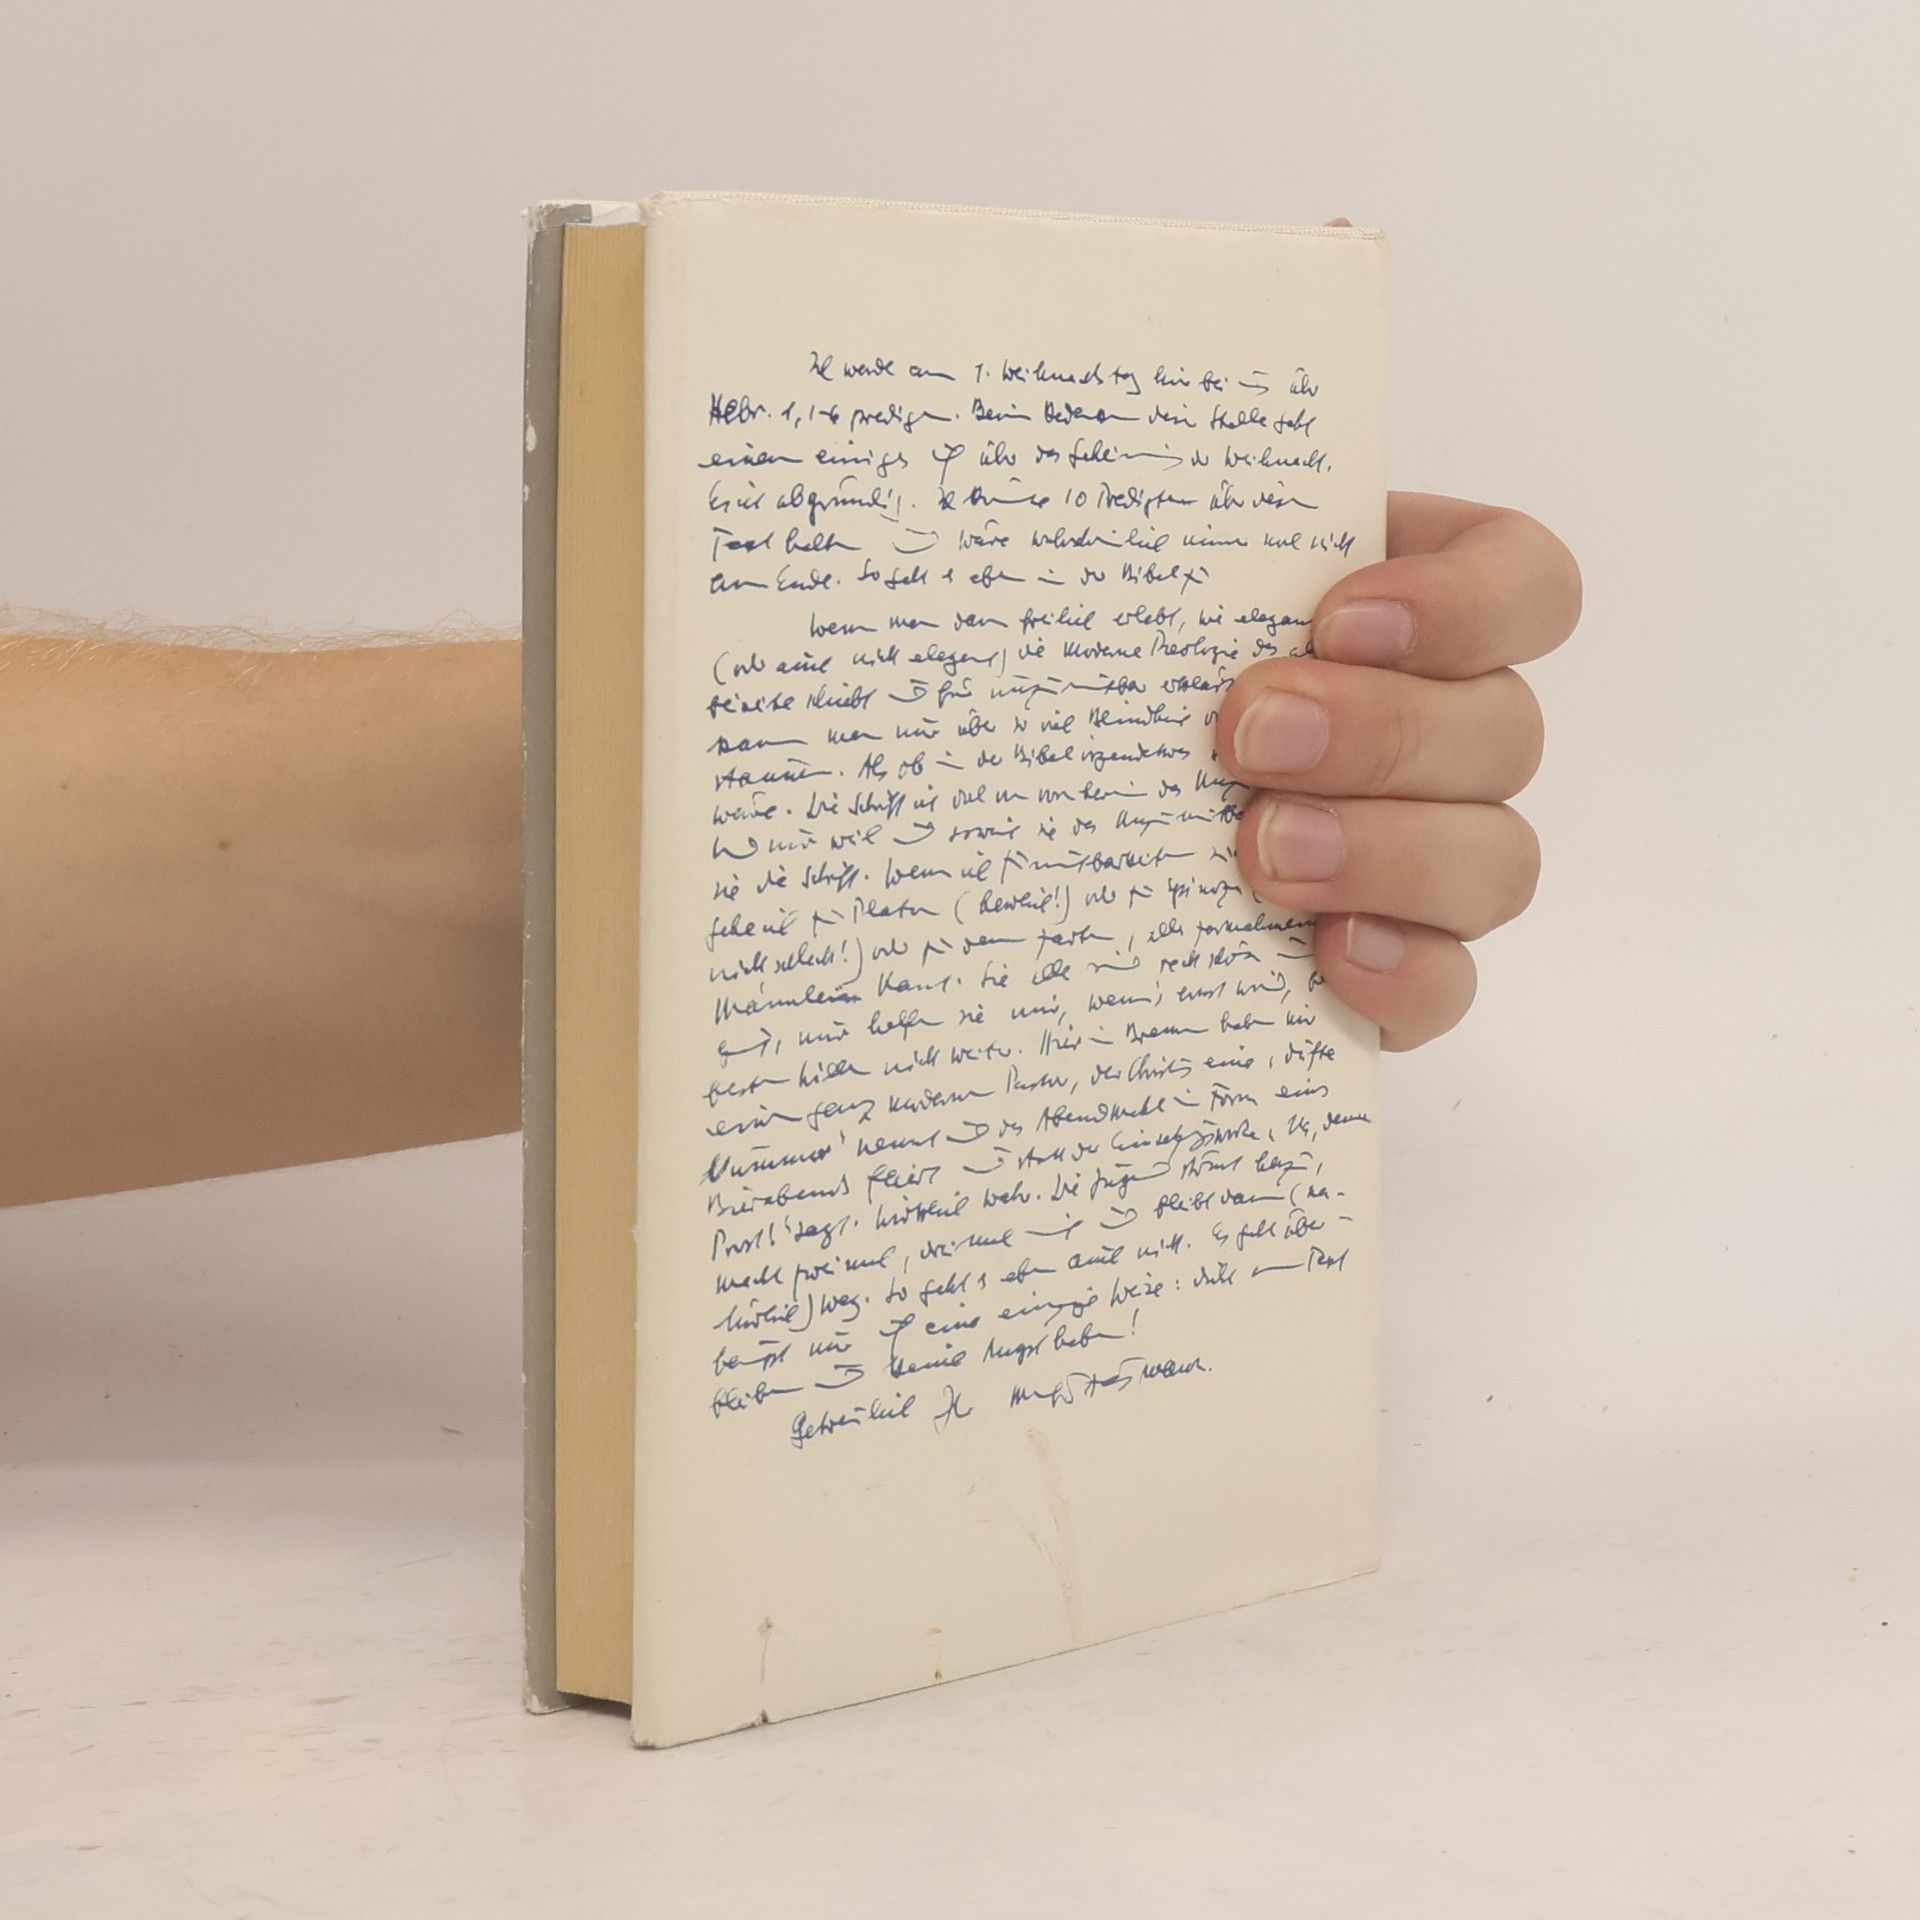 Ich werde am 1. Weihnachtstag hier bei uns über
Hebr. 1, 1-6 predigen. Beim Bedenken dieser Stelle geht
einem einiges auf über das Geheimnis der Weihnacht.
Es ist abgründig. Ich könnte 10 Predigten über diesen
Text halten und wäre wahrscheinlich immer noch nicht
am Ende. So geht es eben in der Bibel zu
Wenn man dann freilich erlebt, wie elegant
(oder auch nicht elegant) die moderne Theologie das
beiseite schiebt und für unzumutbar erklärt
kann man nur über so viel Blindheit
staunen. Als ob in der Bibel irgendetwas
wäre. Die Schrift ist doch von vornherein das
Und nur weil und soweit sie das
sie die Schrift. Wenn ich Zumutbarkeiten
gehe ich zu Platon (herrlich!) oder zu Spinoza (
nicht schlecht!) oder zu dem zarten, alles zermalmenden
Männlein Kant. Sie alle sind recht schön und
gut, nur helfen sie mir, wenn's ernst wird,
besten Willen nicht weiter. Hier in Bremen haben wir
einen ganz modernen Pastor, der Christus eine 'dufte
Nummer' nennt und das Abendmahl in Form eines
Bierabends feiert und statt der Einsetzungsworte 'Na, denn
Prost!' sagt. Wirklich wahr. Die Jugend strömt herzu,
macht zweimal, dreimal mit und bleibt dann (na-
türlich) weg. So geht's eben auch nicht. Es geht über-
haupt nur auf eine einzige Weise: dicht am Text
bleiben und keine Angst haben!
Getreulich Ihr